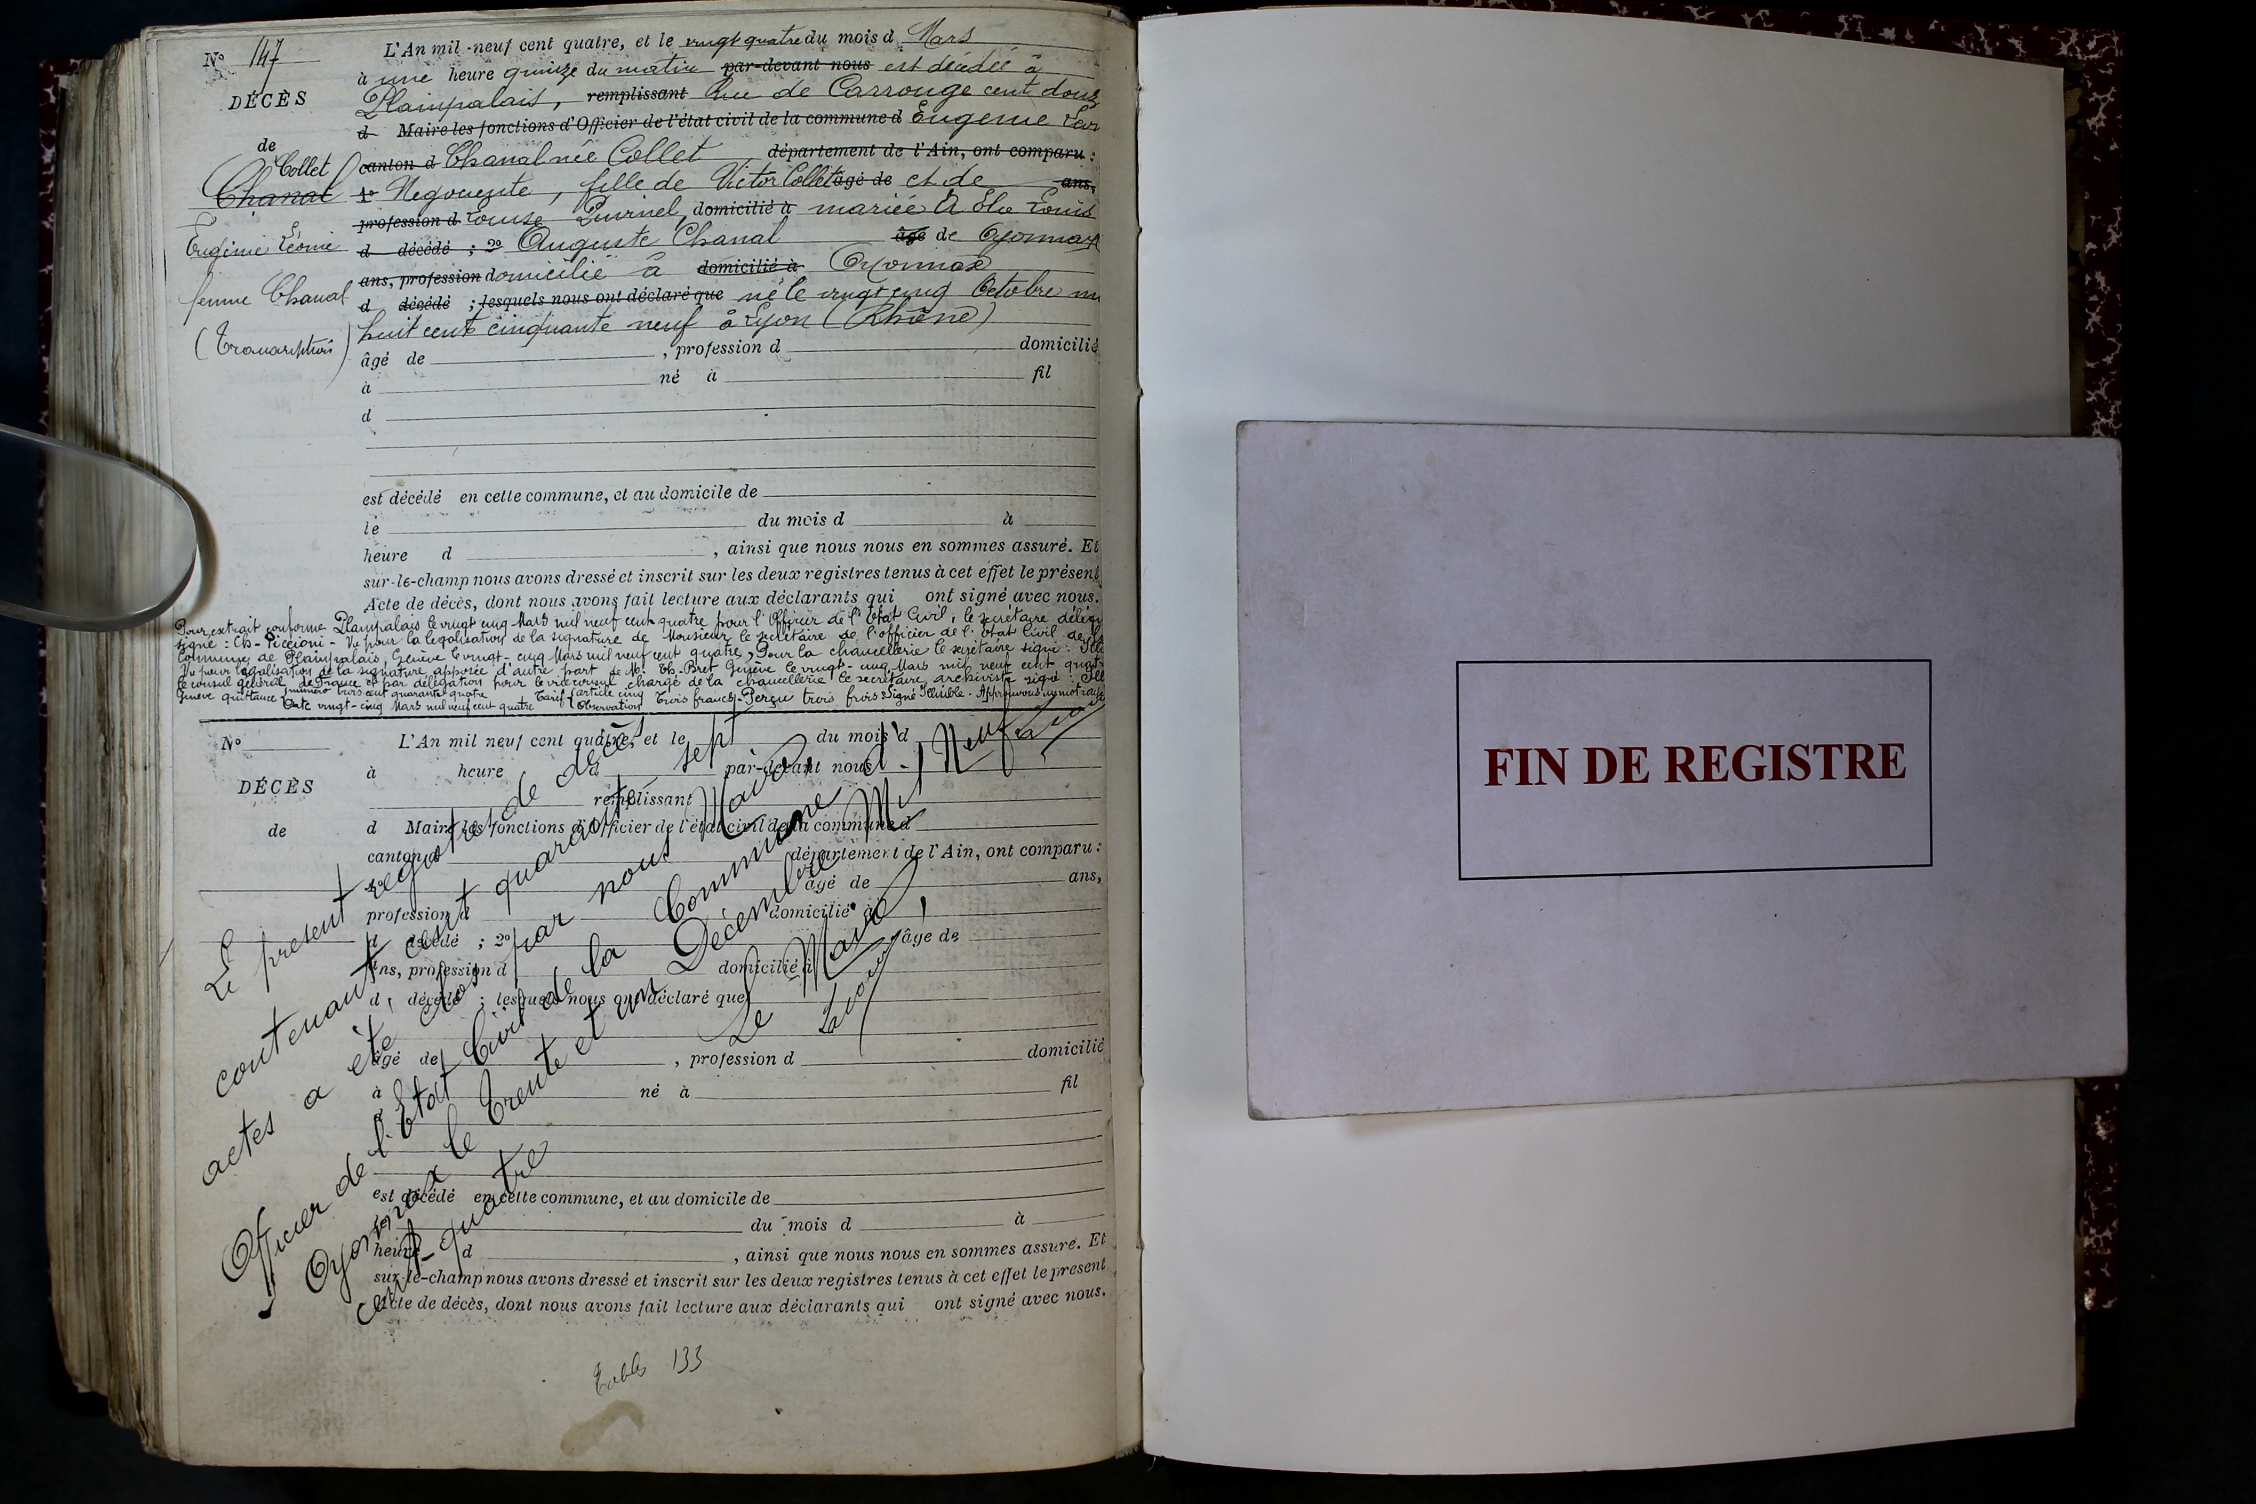 N° 147
DÉCÈS
de
Collet
Chanal
Eugénie Léonie
femme Chanal
(Transcription)
L'An mil-neuf cent quatre, et le vingt quatre du mois d Mars
à une heure quinze du matin par-devant nous est décédée à
Plainpalais, remplissant Rue de Carrouge cent douze
d Maire les fonctions d'Officier de l'état civil de la commune d Eugénie
canton d Chanal née Collet département de l'Ain, ont comparu :
1° Négociante, fille de Victor Collet âgé de et de ans,
profession d Louise domicilié à mariée à Louis
d décédé ; 2° Auguste Chanal âgé de Oyonnax
ans, profession domicilié à domicilié à Oyonnax
d décédé ; lesquels nous ont déclaré que né le vingt cinq Octobre mil
huit cent cinquante neuf à Lyon (Rhône)
âgé de , profession d domicilié
à né à fil
d
est décédé en cette commune, et au domicile de
le du mois d à
heure d , ainsi que nous nous en sommes assuré. Et
sur-le-champ nous avons dressé et inscrit sur les deux registres tenus à cet effet le présent
Acte de décès, dont nous avons fait lecture aux déclarants qui ont signé avec nous.
Pour extrait conforme Plainpalais le vingt cinq Mars mil neuf cent quatre pour l'Officier de l'État Civil, le secrétaire délégué
signé : Ch. Piccioni - Vu pour la légalisation de la signature de Monsieur le secrétaire de l'officier de l'État Civil de la
Commune de Plainpalais, Genève le vingt-cinq Mars mil neuf cent quatre, Pour la chancellerie le secrétaire signé :
Vu pour légalisation de la signature apposée d'autre part de M. Th. Bret Genève le vingt-cinq Mars mil neuf cent quatre
le consul général de France et par délégation pour le vice consul chargé de la chancellerie le secrétaire archiviste signé :
Genève quittance numéro trois cent quarante quatre Tarif article cinq Trois francs - Perçu trois francs Signé Illisible.
Date vingt-cinq Mars mil neuf cent quatre Observation
N°
DÉCÈS
de
L'An mil neuf cent quatre, et le du mois d
à heure d par-devant nous
remplissant
d Maire les fonctions d'Officier de l'état civil de la commune d
canton d département de l'Ain, ont comparu :
1° âgé de ans,
profession d domicilié à
d décédé ; 2° âge de
ans, profession d domicilié à
d décédé ; lesquels nous ont déclaré que
âgé de , profession d domicilié
à né à fil
d
est décédé en cette commune, et au domicile de
le du mois d à
heure d , ainsi que nous nous en sommes assuré. Et
sur-le-champ nous avons dressé et inscrit sur les deux registres tenus à cet effet le présent
Acte de décès, dont nous avons fait lecture aux déclarants qui ont signé avec nous.
Le présent registre de décès
contenant cent quarante sept
actes a été clos par nous Maire,
Officier de l'Etat Civil de la Commune d'
Oyonnax le trente et un Décembre Mil Neuf
cent-quatre
Le Maire,
Tables 133
FIN DE REGISTRE